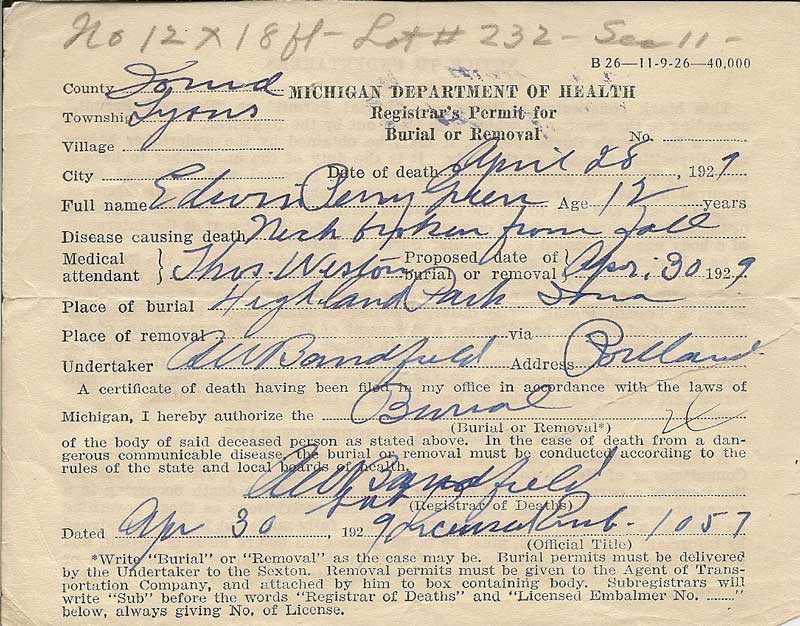 No 12 x 18 ft - Lot # 232 - Sec 11 -
B 26—11-9-26—40,000
County Ionia
MICHIGAN DEPARTMENT OF HEALTH
Township Lyons
Registrar's Permit for
Burial or Removal
Village
No.
City
Date of death April 28, 1929
Full name Edwin Perry Green Age 12 years
Disease causing death Neck broken from fall
Medical attendant } Thos. Weston Proposed date of burial or removal } Apr. 30 1929
Place of burial Highland Park Ionia
Place of removal via
Undertaker Bandfield Address Portland
A certificate of death having been filed in my office in accordance with the laws of
Michigan, I hereby authorize the Burial
(Burial or Removal*)
of the body of said deceased person as stated above. In the case of death from a dan-
gerous communicable disease, the burial or removal must be conducted according to the
rules of the state and local boards of health.
Bandfield
Sub
(Registrar of Deaths)
Dated Apr 30, 1929 Licensed Emb. 1057
(Official Title)
*Write "Burial" or "Removal" as the case may be. Burial permits must be delivered
by the Undertaker to the Sexton. Removal permits must be given to the Agent of Trans-
portation Company, and attached by him to box containing body. Subregistrars will
write "Sub" before the words "Registrar of Deaths" and "Licensed Embalmer No. ........"
below, always giving No. of License.